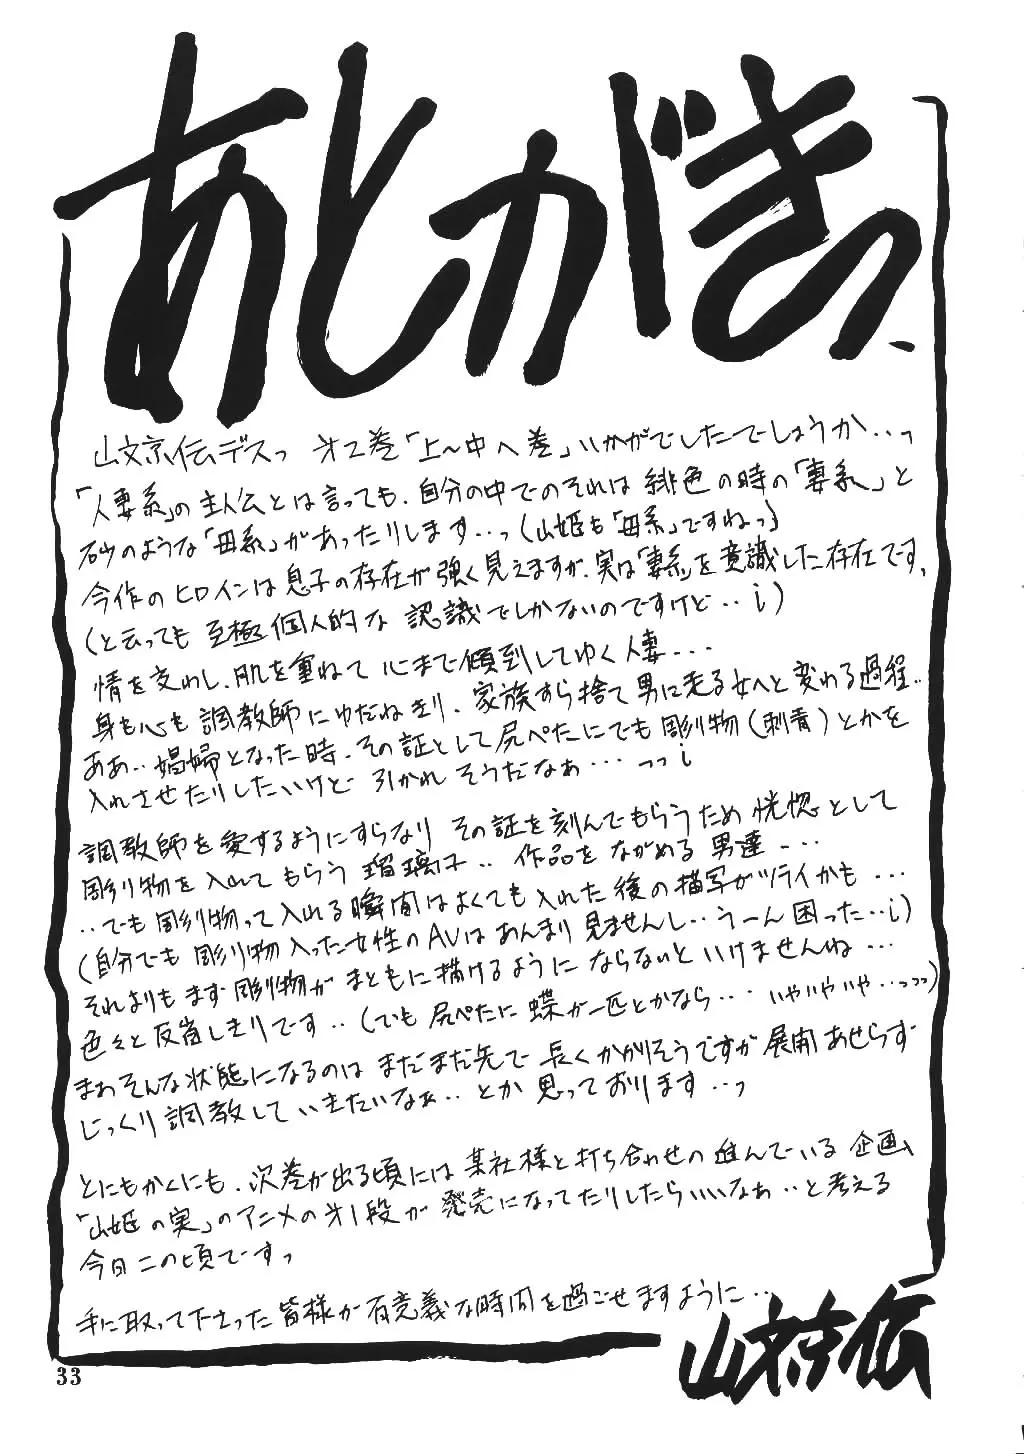 あとがきっ
山文京伝デスっ 才2巻「上〜中へ巻」いかがでしたでしょうか‥っ
「人妻系」の主人公とは言っても、自分の中でのそれは緋色の時の「妻系」と
砂のような「母系」があったりします‥っ(山姫も「母系」ですねっ)
今作のヒロインは息子の存在が強く見えますが、実は「妻系」を意識した存在です、
(と云っても至極個人的な認識でしかないのですけど‥i)
情を交わし、肌を重ねて心まで傾倒してゆく人妻‥‥
身も心も調教師にゆだねきり、家族すら捨て男に走る女へと変わる過程‥
ああ‥娼婦となった時、その証として尻ぺたにでも彫り物(刺青)とかを
入れさせたりしたいけど引かれそうだなぁ‥‥っっi
調教師を愛するようにすらなり その証を刻んでもらうため恍惚として
彫り物を入れてもらう瑠璃子‥作品をながめる男達‥‥
‥でも彫り物って入れる瞬間はよくても入れた後の描写がツライかも‥‥
(自分でも彫り物入った女性のAVはあんまり見ませんし‥うーん困った‥i)
それよりもまず彫り物がまともに描けるようにならないといけませんね‥‥
色々と反省しきりです‥(でも尻ぺたに蝶が一匹とかなら‥‥いやいやいや‥っっっ)
まぁそんな状態になるのはまだまだ先で長くかかりそうですが展開あせらず
じっくり調教していきたいなぁ‥とか思っております‥っ
とにもかくにも、次巻が出る頃には某社様と打ち合わせの進んでいる企画、
「山姫の実」のアニメの才1段が発売になってたりしたらいいなぁ‥と考える
今日この頃ですっ
手に取って下さった皆様が有意義な時間を過ごせますように‥
山文京伝
33